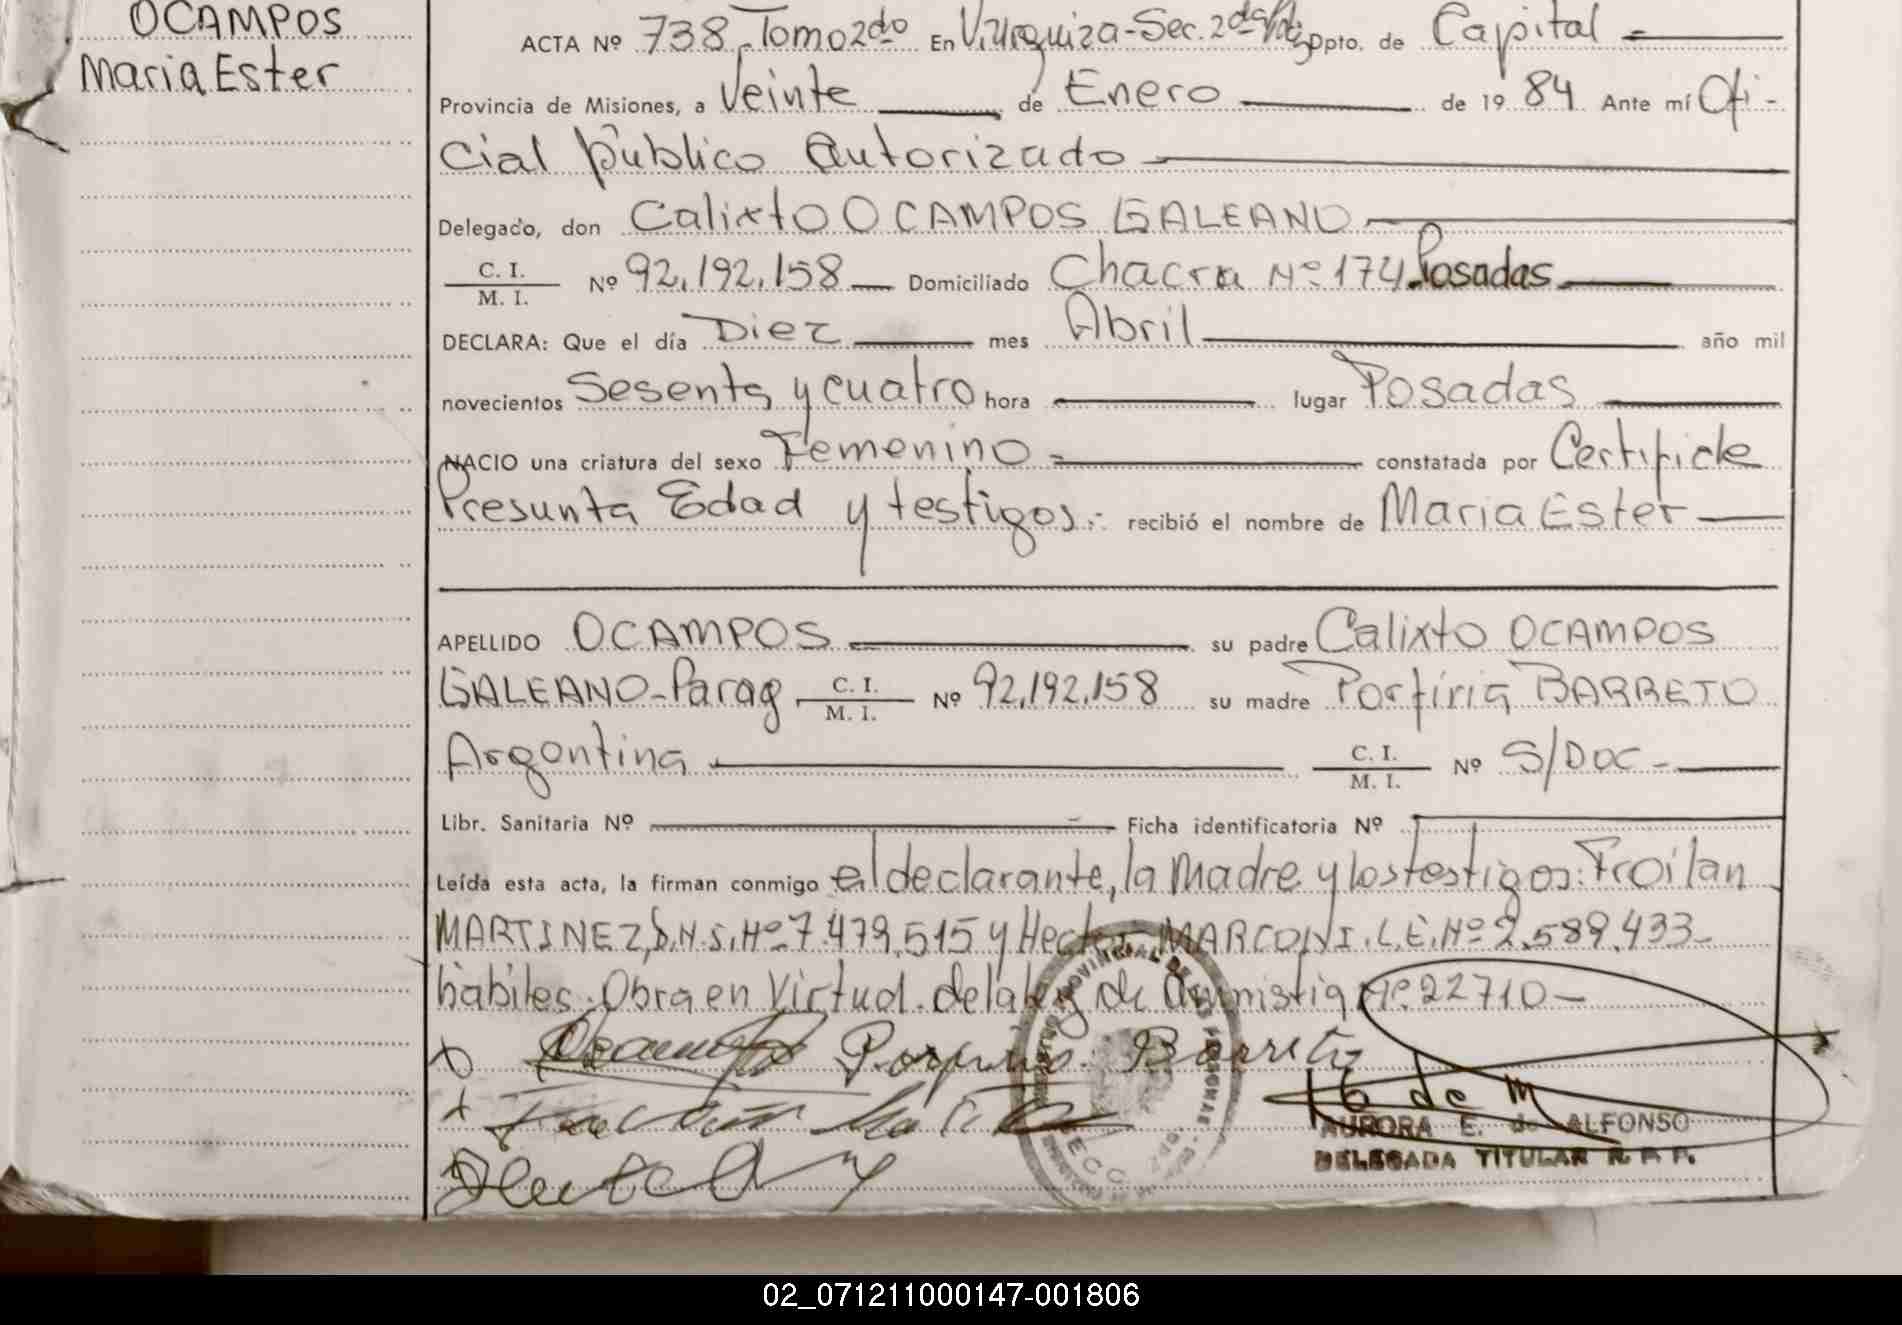 OCAMPOS
Maria Ester
ACTA Nº 738 - Tomo 2do En V. Urquiza - Sec. 2da Ppto. de Capital
Provincia de Misiones, a Veinte de Enero de 19 84 Ante mí Ofi-
cial Público Autorizado
Delegado, don Calixto OCAMPOS GALEANO
C. I.
M. I. Nº 92.192.158 Domiciliado Chacra Nº 174. Posadas
DECLARA: Que el día Diez mes Abril año mil
novecientos Sesenta y cuatro hora lugar Posadas
NACIO una criatura del sexo Femenino constatada por Certific de
Presunta Edad y testigos.- recibió el nombre de Maria Ester
APELLIDO OCAMPOS su padre Calixto OCAMPOS
GALEANO-Parag C. I.
M. I. Nº 92.192.158 su madre Porfiria BARRETO
Argentina C. I.
M. I. Nº S/Doc -
Libr. Sanitaria Nº Ficha identificatoria Nº
Leída esta acta, la firman conmigo el declarante, la Madre y los testigos: Troilan
MARTINEZ, D.N.I. Nº 7.479.515 y Hector MARCONI. L.E. Nº 2.589.433-
hábiles. Obra en Virtud. de la ley de Amnistia Nº 22710-
Porfiria Barreto
16 de M
AURORA E. de ALFONSO
DELEGADA TITULAR R. P. P.
02_071211000147-001806